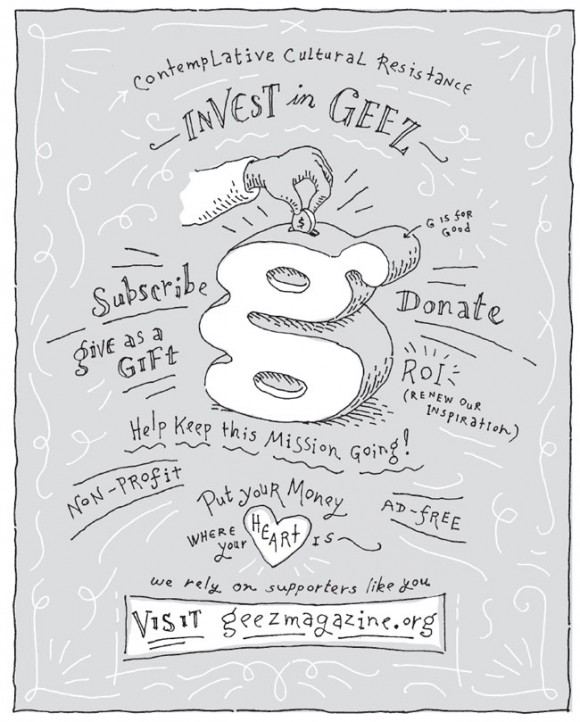 Contemplative Cultural Resistance
INVEST in GEEZ
$
G is for
Good
g
Subscribe
Donate
give as a
GIFT
ROI
(Renew our
Inspiration)
Help Keep this Mission Going!
Non-Profit
Put your Money
AD-FREE
WHERE
your
HEART
IS
we rely on supporters like you
VISIT geezmagazine.org